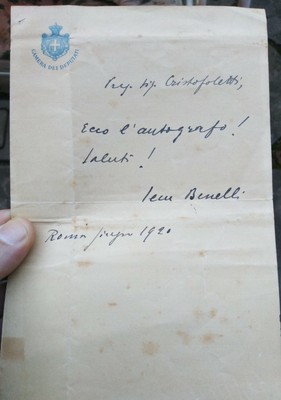 CAMERA DEI DEPUTATI
Preg. Sig. Cristofoletti,
Ecco l'autografo!
Saluti!
Sem Benelli
Roma giugno 1920